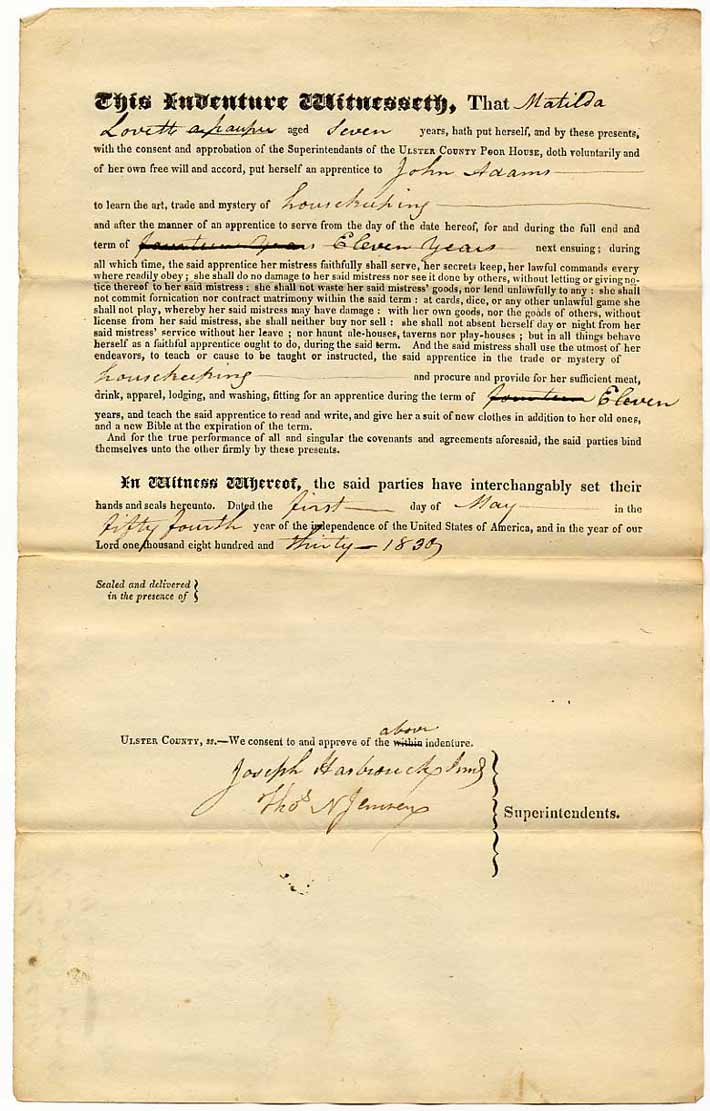 This Indenture Witnesseth, That Matilda
Lovett a pauper aged Seven years, hath put herself, and by these presents,
with the consent and approbation of the Superintendants of the ULSTER COUNTY POOR HOUSE, doth voluntarily and
of her own free will and accord, put herself an apprentice to John Adams
to learn the art, trade and mystery of housekeeping
and after the manner of an apprentice to serve from the day of the date hereof, for and during the full end and
term of fourteen Years Eleven Years next ensuing; during
all which time, the said apprentice her mistress faithfully shall serve, her secrets keep, her lawful commands every
where readily obey; she shall do no damage to her said mistress nor see it done by others, without letting or giving no-
tice thereof to her said mistress: she shall not waste her said mistress' goods, nor lend unlawfully to any: she shall
not commit fornication nor contract matrimony within the said term: at cards, dice, or any other unlawful game she
shall not play, whereby her said mistress may have damage: with her own goods, nor the goods of others, without
license from her said mistress, she shall neither buy nor sell: she shall not absent herself day or night from her
said mistress' service without her leave; nor haunt ale-houses, taverns nor play-houses; but in all things behave
herself as a faithful apprentice ought to do, during the said term. And the said mistress shall use the utmost of her
endeavors, to teach or cause to be taught or instructed, the said apprentice in the trade or mystery of
housekeeping and procure and provide for her sufficient meat,
drink, apparel, lodging, and washing, fitting for an apprentice during the term of fourteen Eleven
years, and teach the said apprentice to read and write, and give her a suit of new clothes in addition to her old ones,
and a new Bible at the expiration of the term.
And for the true performance of all and singular the covenants and agreements aforesaid, the said parties bind
themselves unto the other firmly by these presents.
In Witness Whereof, the said parties have interchangably set their
hands and seals hereunto. Dated the first day of May in the
fifty fourth year of the independence of the United States of America, and in the year of our
Lord one thousand eight hundred and thirty 1830
Sealed and delivered }
in the presence of }
above
ULSTER COUNTY, ss.—We consent to and approve of the within indenture.
Joseph Hasbrouck Jun
Thos N Jansen
Superintendents.